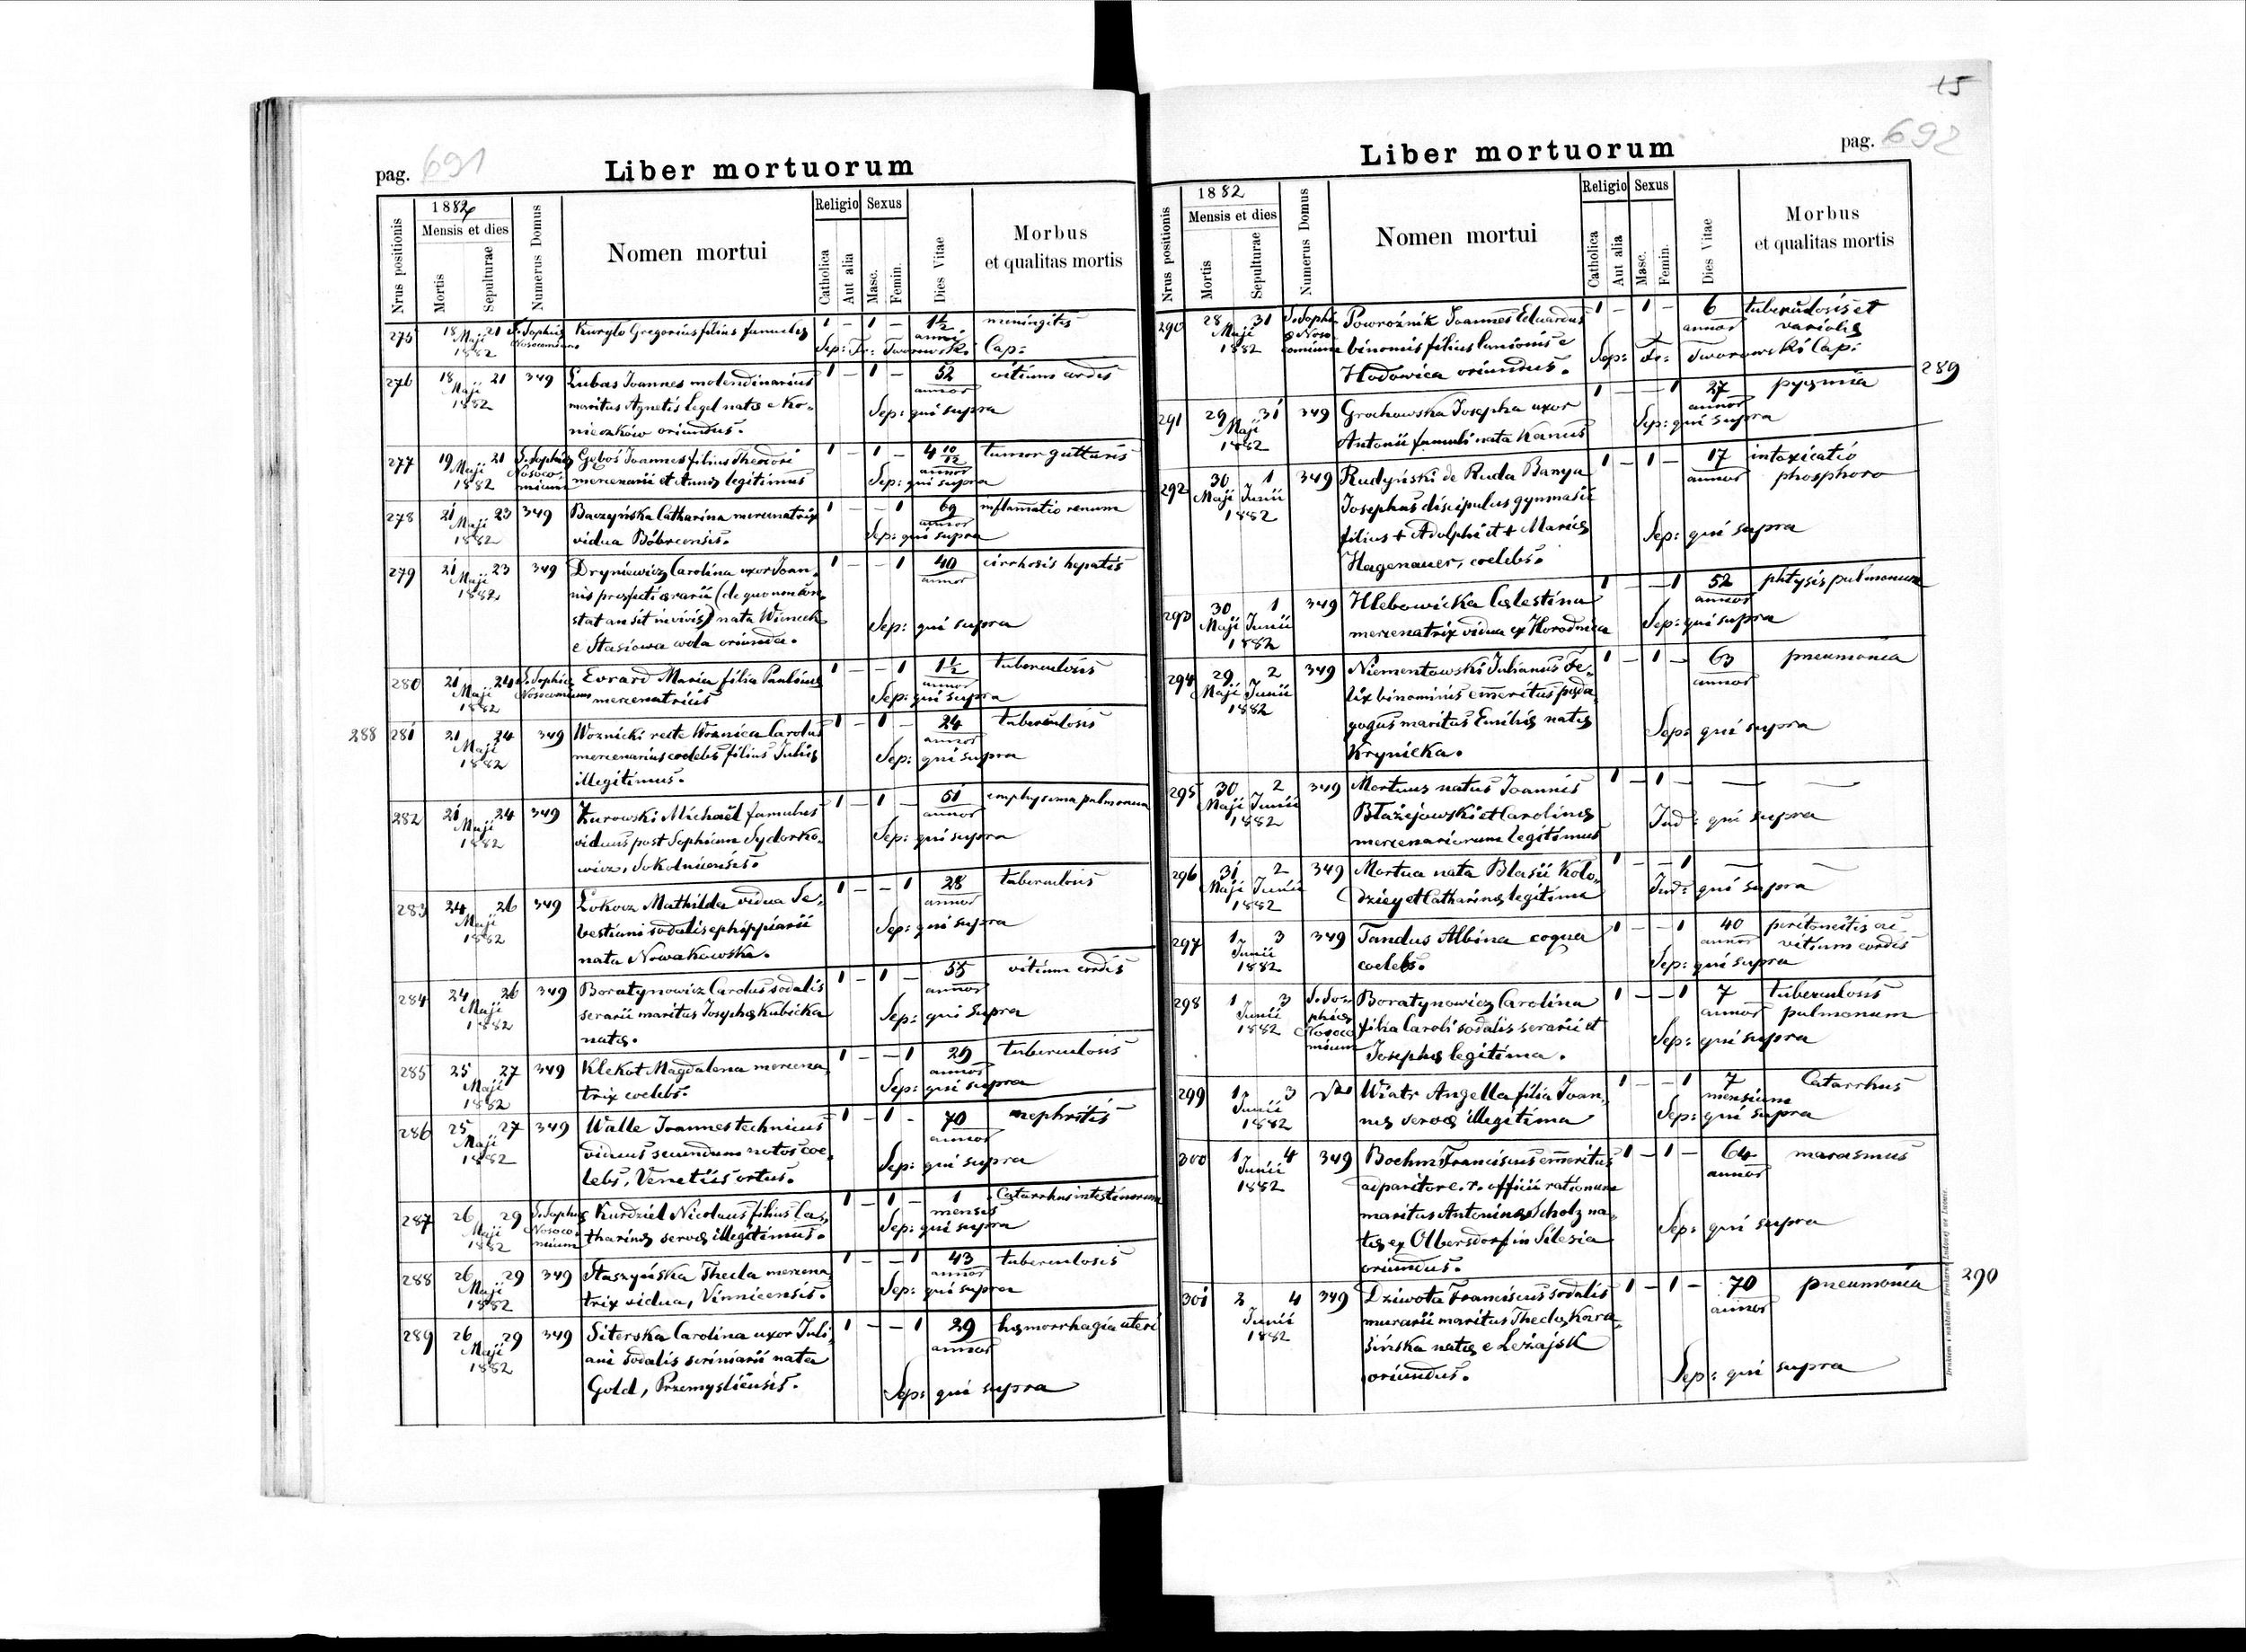 pag. 691
Liber mortuorum
1882
Mensis et dies
Nrus positionis
Mortis
Sepulturae
Numerus Domus
Nomen mortui
Religio
Sexus
Catholica
Aut alia
Masc.
Femin.
Dies Vitae
Morbus
et qualitas mortis
275 18 21 S. Sophiæ Kuryło Gregorius filius famuli 1 – 1 – 1½ meningitis
Maji Nosocomium anni
1882 Sep: Fr: Tworowski Cap:
276 18 21 349 Lubas Joannes molendinarius 1 – 1 – 52 vitium cordis
Maji maritus Agnetis Legel natæ e Ko- annor
1882 nieczków oriundus. Sep: qui supra
277 19 21 S. Sophiæ Goboś Joannes filius Theodori 1 – 1 – 4 10/12 tumor gutturis
Maji Nosoco- mercenarii et Annæ legitimus annor
1882 mium Sep: qui supra
278 21 23 349 Baczyńska Catharina mercenatrix 1 – – 1 69 inflammatio renum
Maji vidua Bóbrcensis. annor
1882 Sep: qui supra
279 21 23 349 Dryniewicz Carolina uxor Joan- 1 – – 1 40 cirrhosis hepatis
Maji nis præfecti ærarii (de quo non con- annor
1882 stat an sit in vivis) nata Wieniek Sep: qui supra
e Stasiowa wola oriunda.
280 21 24 S. Sophiæ Evrard Maria filia Paulinæ 1 – – 1 1½ tuberculosis
Maji Nosocomium mercenatricis annor
1882 Sep: qui supra
288 281 21 24 349 Woznicki recte Woźnica Carolus 1 – 1 – 24 tuberculosis
Maji mercenarius coelebs filius Juliæ annor
1882 illegitimus. Sep: qui supra
282 21 24 349 Żurowski Michaël famulus 1 – 1 – 51 emphysema pulmonum
Maji viduus post Sophiam Sydorko- annor
1882 wicz, Sokolnicensis. Sep: qui supra
283 24 26 349 Łokocz Mathilda vidua Se- 1 – – 1 28 tuberculosis
Maji bestiani sodalis ephippiarii annor
1882 nata Nowakowska. Sep: qui supra
284 24 26 349 Boratynowicz Carolus sodalis 1 – 1 – 55 vitium cordis
Maji serarii maritus Josephæ Kubicka annor
1882 natæ. Sep: qui supra
285 25 27 349 Klekot Magdalena mercena- 1 – – 1 29 tuberculosis
Maji trix coelebs. annor
1882 Sep: qui supra
286 25 27 349 Walle Joannes technicus 1 – 1 – 70 nephritis
Maji viduus secundum notos coe- annor
1882 lebs, Venetiis ortus. Sep: qui supra
287 26 29 S. Sophiæ Kurdziel Nicolaus filius Ca- 1 – 1 – 1 Catarrhus intestinorum
Maji Nosoco- tharinæ servæ illegitimus. mensis
1882 mium Sep: qui supra
288 26 29 349 Staszyńska Thecla mercena- 1 – – 1 43 tuberculosis
Maji trix vidua, Vinnicensis. annor
1882 Sep: qui supra
289 26 29 349 Siterska Carolina uxor Juli- 1 – – 1 29 hæmorrhagia uteri
Maji ani sodalis scriniarii nata annor
1882 Gold, Przemysliensis. Sep: qui supra
15
Liber mortuorum
pag. 692
1882
Mensis et dies
Nrus positionis
Mortis
Sepulturae
Numerus Domus
Nomen mortui
Religio
Sexus
Catholica
Aut alia
Masc.
Femin.
Dies Vitae
Morbus
et qualitas mortis
290 28 31 S. Sophi- Powroźnik Joannes Eduardus 1 – 1 – 6 tuberculosis et
Maji æ Noso- binomis filius lanionis e annor variolis
1882 comium Hodowica oriundus. Sep: Fr: Tworowski Cap:
289
291 29 31 349 Grochowska Josepha uxor 1 – – 1 27 pyæmia
Maji Antonii famuli nata Kanus annor
1882 Sep: qui supra
292 30 1 349 Rudyński de Ruda Banya 1 – 1 – 17 intoxicatio
Maji Junii Josephus discipulus gymnasii annor phosphoro
1882 filius + Adolphi et + Mariæ Sep: qui supra
Hagenauer, coelebs.
293 30 1 349 Hlebowicka Cælestina 1 – – 1 52 phtysis pulmonum
Maji Junii mercenatrix vidua ex Horodnica annor
1882 Sep: qui supra
294 29 2 349 Niementowski Julianus Fe- 1 – 1 – 63 pneumonia
Maji Junii lix binominis emeritus pæda- annor
1882 gogus maritus Emiliæ natæ Sep: qui supra
Krynicka.
295 30 2 349 Mortuus natus Joannis 1 – 1 – — —
Maji Junii Błażijowski et Carolinæ
1882 mercenariorum legitimus Ind: qui supra
296 31 2 349 Mortua nata Blasii Koło- 1 – – 1 — —
Maji Junii dziey et Catharinæ legitima Ind: qui supra
1882
297 1 3 349 Tandus Albina coqua 1 – – 1 40 peritoneitis ac
Junii coelebs. annor vitium cordis
1882 Sep: qui supra
298 1 3 S. So- Boratynowicz Carolina 1 – – 1 7 tuberculosis
Junii phiæ filia Caroli sodalis serarii et annor pulmonum
1882 Nosoco- Josephæ legitima. Sep: qui supra
mium
299 1 3 Wiatr Angella filia Joan- 1 – – 1 7 Catarrhus
Junii næ servæ illegitima mensium
1882 Sep: qui supra
300 1 4 349 Boehm Franciscus emeritus 1 – 1 – 64 marasmus
Junii adparitor c. r. officii rationum annor
1882 maritus Antoninæ Scholz na- Sep: qui supra
tæ ex Olbersdorf in Silesia
oriundus.
301 2 4 349 Dziwota Franciscus sodalis 1 – 1 – 70 pneumonia 290
Junii murarii maritus Theclæ Kara- annor
1882 sińska natæ e Leżajsk Sep: qui supra
oriundus.
Drukiem i nakładem Drukarni Ludowej we Lwowie.